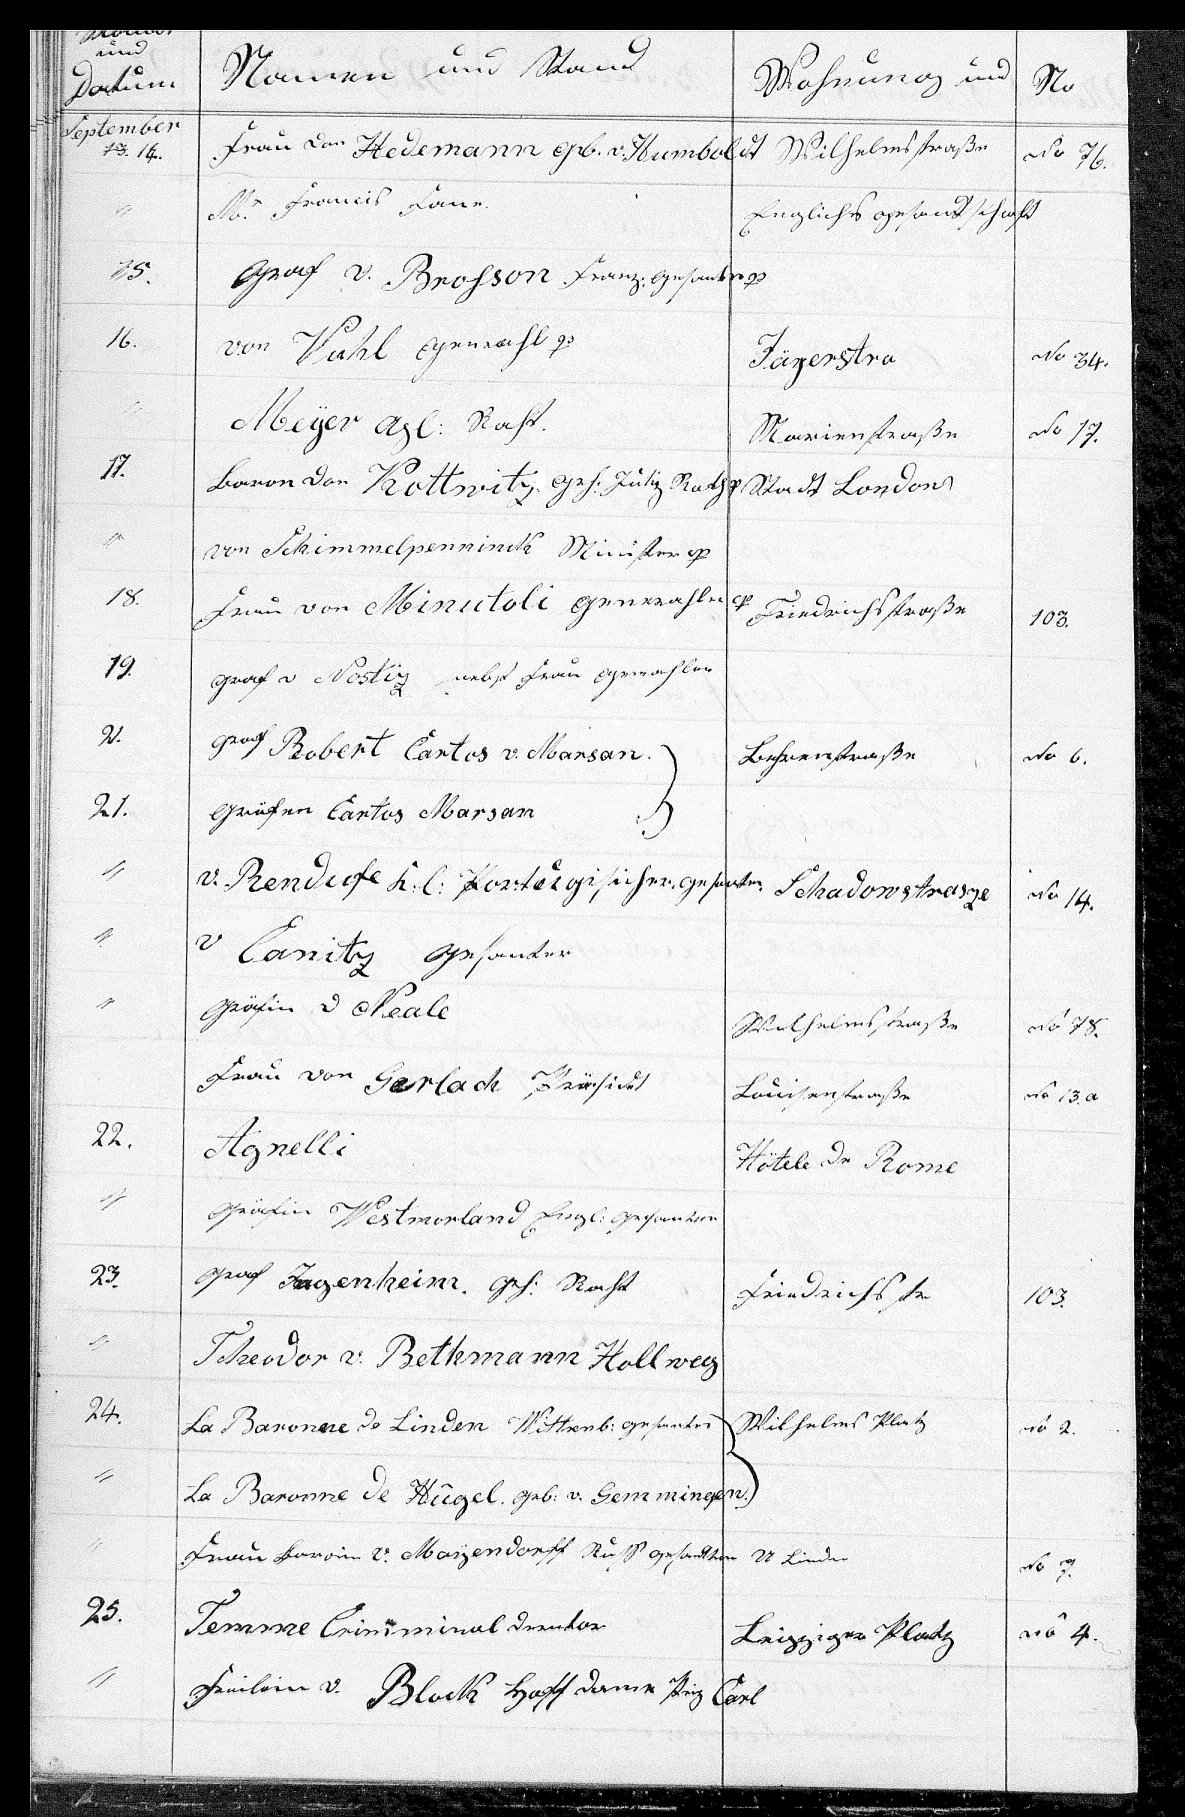 und
Datum Namen und Stand Wohnung und No
September
13. 14. Frau von Hedemann geb. v. Humboldt Wilhelmstraße No 76.
" Mr. Francis Fane. Englichs gesandtschaft
15. Graf v. Brosson Franz. gesanter
16. von Kuhl generahl Jägerstra No 34.
" Meÿer Raht. Marienstraße No 17.
17. baron von Kottwitz. geh. Justiz Rath Stadt London
" von Schimmelpenninck Minister
18. Frau von Minutoli generahlen Friedrichsstraße 103.
19. graf v Nostiz nebst Frau gemahlen
21. graf Robert Cartos v. Marsan. Behrenstraße No 6.
21. gräfen Cartos Marsan
" v. Rendufe k. l: Portugisischer. gesanter. Schadowstrasze No 14.
" v Canitz gesanter
" gräfin v Neale Wilhelmsstraße No 78.
Frau von Gerlach Präsidt Louisenstraße No 13. a
22. Agnelli Hôtele de Rome
" gräfin Westmorland Engl: gesanten
23. graf Ingenheim. geh: Raht Friedrichs str 103.
" Theodor v. Bethmann Hollweg
24. La Baronne de Linden Wittenb: gesanten Wilhelms Platz No 2.
" La Baronne de Hügel. geb: v. Gemmingen.
" Frau baronin v. Maÿendorff Russ gesandten U Linden No 7.
25. Temme Criminal director Leipziger Platz No 4.
" Freilein v. Block Hoff dame Prz Carl